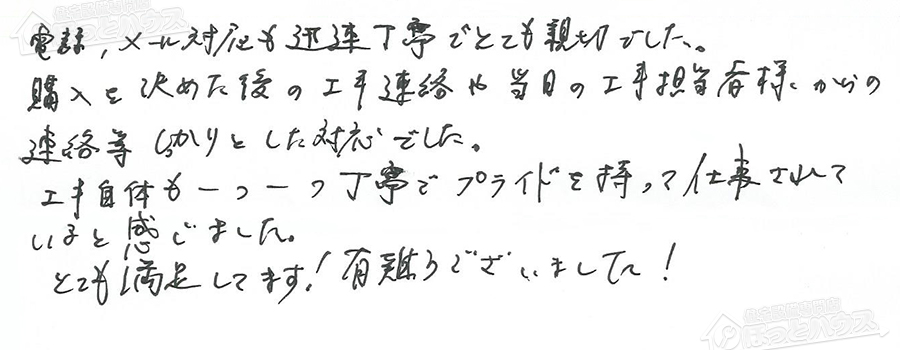 電話，メール対応も迅速丁寧でとても親切でした。
購入を決めた後の工事連絡や当日の工事担当者様からの
連絡等しっかりとした対応でした。
工事自体も一つ一つ丁寧でプライドを持って仕事されて
いると感じました。
とても満足してます！有難うございました！
ほっとハウス